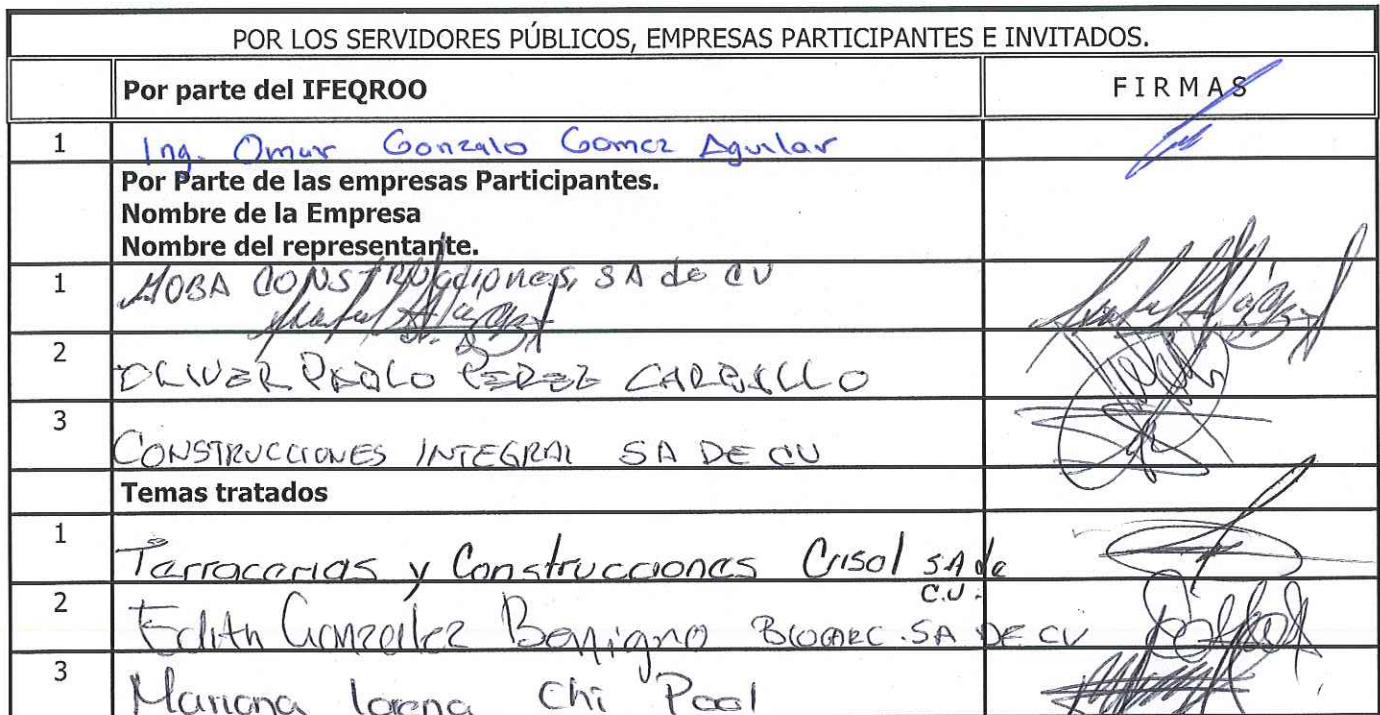 POR LOS SERVIDORES PÚBLICOS, EMPRESAS PARTICIPANTES E INVITADOS.
Por parte del IFEQROO FIRMAS
1 Ing. Omar Gonzalo Gomez Aguilar
Por Parte de las empresas Participantes.
Nombre de la Empresa
Nombre del representante.
1 MOBA CONSTRUcciones, SA de CV
2 OLIVER PABLO PEREZ CARRILLO
3 CONSTRUCCIONES INTEGRAL SA DE CV
Temas tratados
1 Terracerias y Construcciones Crisol SA de
C.V.
2 Edith Gonzalez Benigno SA DE CV
3 Mariana lorena Chi Pool